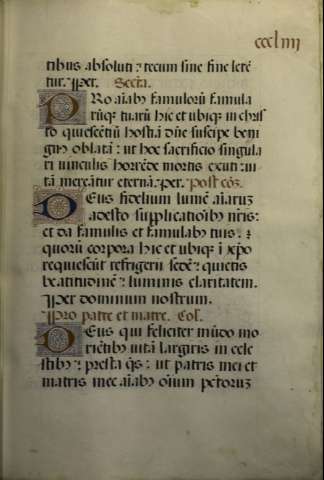 cccliiij
tibus absoluti : tecum sine fine lete
tur. Per. Secta.
PRo aiabꝫ famuloꝝ famula
rūqꝫ tuarū hic et ubiqꝫ in chris
to quiescētiū hostiā dn̄e suscipe beni
gn̄ oblatā : ut hoc sacrificio singula
ri uinculis horrēde mortis exuti : ui
tā mereātur eternā. Per. Post cōs.
DEus fidelium lumē aiaruꝫ
adesto supplicatioībꝫ nr̄is :
et da famulis et famulabꝫ tuis. :
quorū corpora hic et ubiqꝫ i xp̄o
requiescūt refrigerii sedē : quietis
beatitudinē : luminis claritatem.
Per dominum nostrum.
Pro patre et matre. Col.
DEus qui feliciter mūdo mo
riētibꝫ uitā largiris in cele
stibꝫ : presta qs̄ : ut patris mei et
matris mee aiabꝫ oīum pctoruꝫ